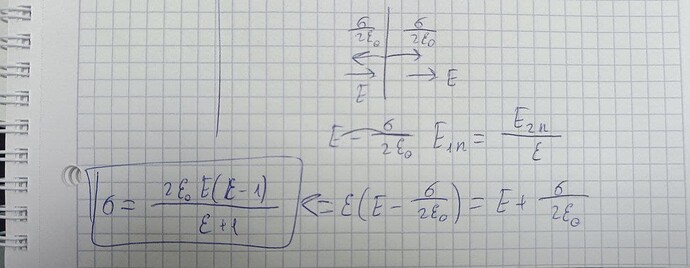 σ/2ε₀ | σ/2ε₀
← →
→ E → E
E - σ/2ε₀ E₁ₙ = E₂ₙ/ε
σ = 2ε₀E(ε-1)/ε+1 <= ε(E - σ/2ε₀) = E + σ/2ε₀